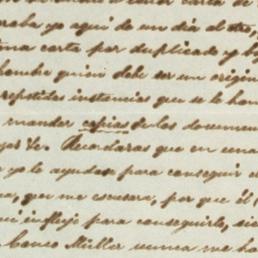 raba yo aquí de un día al otro,
una carta por duplicado y
hombre quien debe ser un origin
repetidas instancias que se le han
mandar copias de los documen
Recordaras que en una
yo le ayudase para conseguir
que me escusare, por que él
influjo para conseguirlo, si
Banco Müller nunca me ha